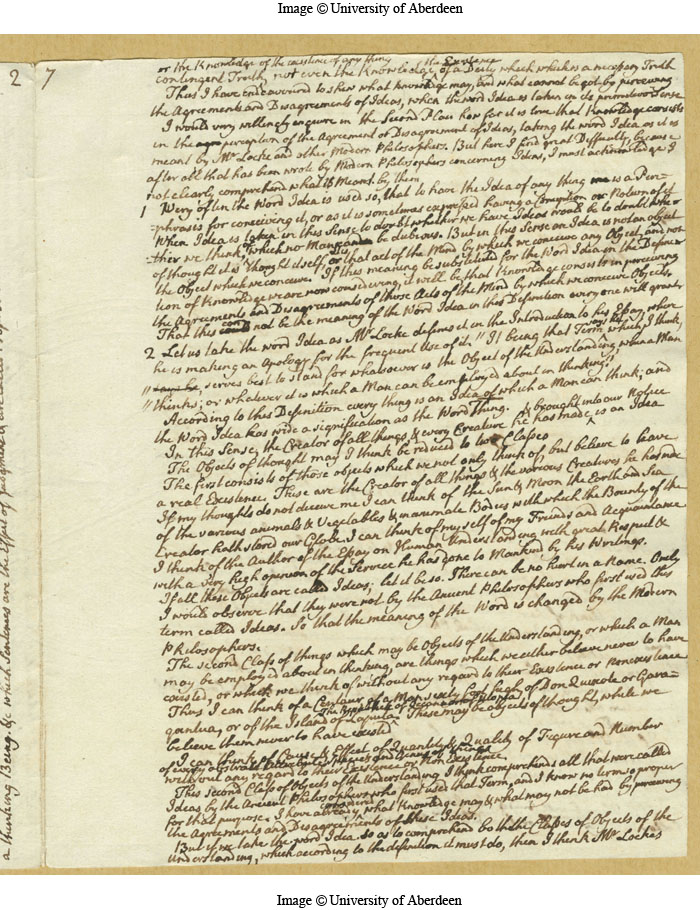 Image © University of Aberdeen
2 7
or the Knowledge of the existence of any thing
contingent Truth, not even the Knowledge of the Existence of a Deity which is a necessary Truth
Thus I have endeavoured to shew what knowledge may, and what cannot be got by perceiving
the Agreements and Disagreements of Ideas, when the word Idea is taken in its primitive Sense
I would very willingly enquire in the Second Place how far it is true that Knowledge consists
in the perception of the Agreement or Disagreement of Ideas, taking the word Idea as it is
meant by Mr Locke and other Modern Philosophers. But here I find great Difficulty, because
after all that has been wrote by Modern Philosophers concerning Ideas, I must acknowledge I
not clearly comprehend what is Meant by them
1 Very often the Word Idea is used so, that to have the Idea of any thing is a Peri-
phrases for conceiving it, or as it is sometimes expressed having a Conception or Notion of it
When Idea is taken in this Sense to doubt whether we have Ideas would be to doubt whe-
ther we think, which no Man can be dubious. But in this Sense an Idea is not an object
of thought it is thought itself, or that act of the Mind by which we conceive any Object, and not
the Object which we conceive. If this meaning be substituted for the Word Idea in the Defini-
tion of Knowledge we are now considering, it will be that Knowledge consists in perceiving
the Agreements and Disagreements of those Acts of the Mind by which we conceive Objects,
That this could not be the meaning of the Word Idea in this Definition every one will grant,
2 Let us take the word Idea as Mr Locke defines it in the Introduction to his Essay, where
he is making an Apology for the frequent Use of it. "It being that Term, says he, which, I think,
" serves best to stand for whatsoever is the Object of the Understanding when a Man
" thinks; or whatever it is which a Man can be employed about in thinking,"
According to this Definition every thing is an Idea of which a Man can think; and
the Word Idea has as wide a signification as the Word Thing.
In this Sense, the Creator of all things, & every Creature he has made & brought into our Notice is an Idea
The Objects of thought may I think be reduced to two Classes
The first consists of those objects which we not only think of, but believe to have
a real Existence. These are the Creator of all things & the various Creatures he has made
If my thoughts do not deceive me I can think of the Sun & Moon the Earth and Sea
of the various animals & Vegetables & inanimate Bodies with which the Bounty of the
Creator hath stored our Globe. I can think of myself of my Friends and Acquaintance
I think of the Author of the Essay on Human Understanding with great Respect &
with a very high opinion of the Service he has done to Mankind by his Writings.
If all these Objects are called Ideas; let it be so. There can be no hurt in a Name. Only
I would observe that they were not by the Ancient Philosophers who first used this
term called Ideas. So that the meaning of the Word is changed by the Modern
Philosophers.
The second Class of things which may be Objects of the Understanding, or which a Man
may be employed about in thinking, are things which we either believe never to have
existed, or which we think of without any regard to their Existence or Nonexistence
Thus I can think of a Centaur of a Man sixty foot high of Don Quixote or Gara-
gantua, or of the Island of Laputa. These may be objects of thought, while we
believe them never to have existed
I can think of Cause & Effect of Quantity & Quality of Figure and Number
without any regard to their Existence or Non Existence
This second Class of Objects of the Understanding I think comprehends all that were called
Ideas by the Ancient Philosophers who first used that Term, and I know no term so proper
for that purpose, I have already considered what Knowledge may & what may not be had by perceiving
the Agreements and Disagreements of these Ideas.
But if we take the word Idea so as to comprehend both the Classes of Objects of the
Understanding, which according to the definition it must do, then I think Mr Lockes
a thinking Being. &c which Sentences are the Effect of Judgment
Image © University of Aberdeen